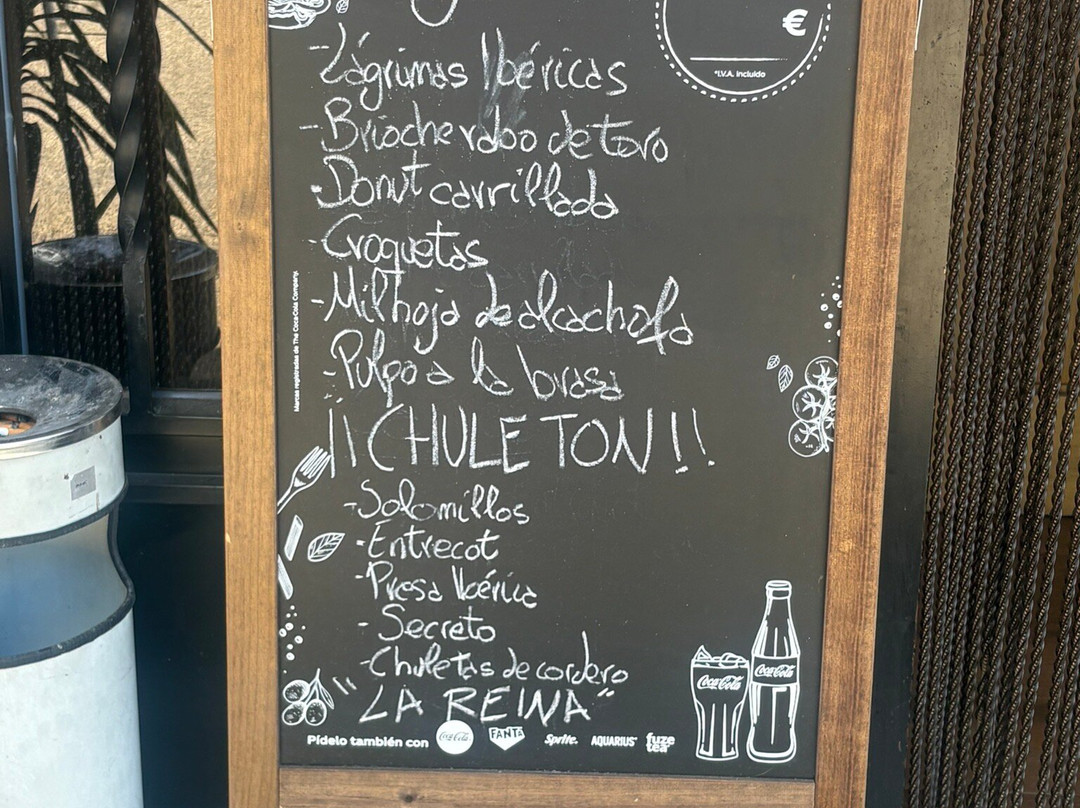 €
*I.V.A. Incluido
-Lágrimas Ibéricas
-Brioche rabo de toro
-Donut carrillada
-Croquetas
-Milhoja de alcachofa
-Pulpo a la brasa
¡¡CHULETON!!
-Solomillos
-Entrecot
-Presa Ibérica
-Secreto
-Chuletas de cordero
"LA REINA"
Pídelo también con Coca-Cola FANTA Sprite. AQUARIUS fuze tea
Coca-Cola Coca-Cola
Marcas registradas de The Coca-Cola Company.